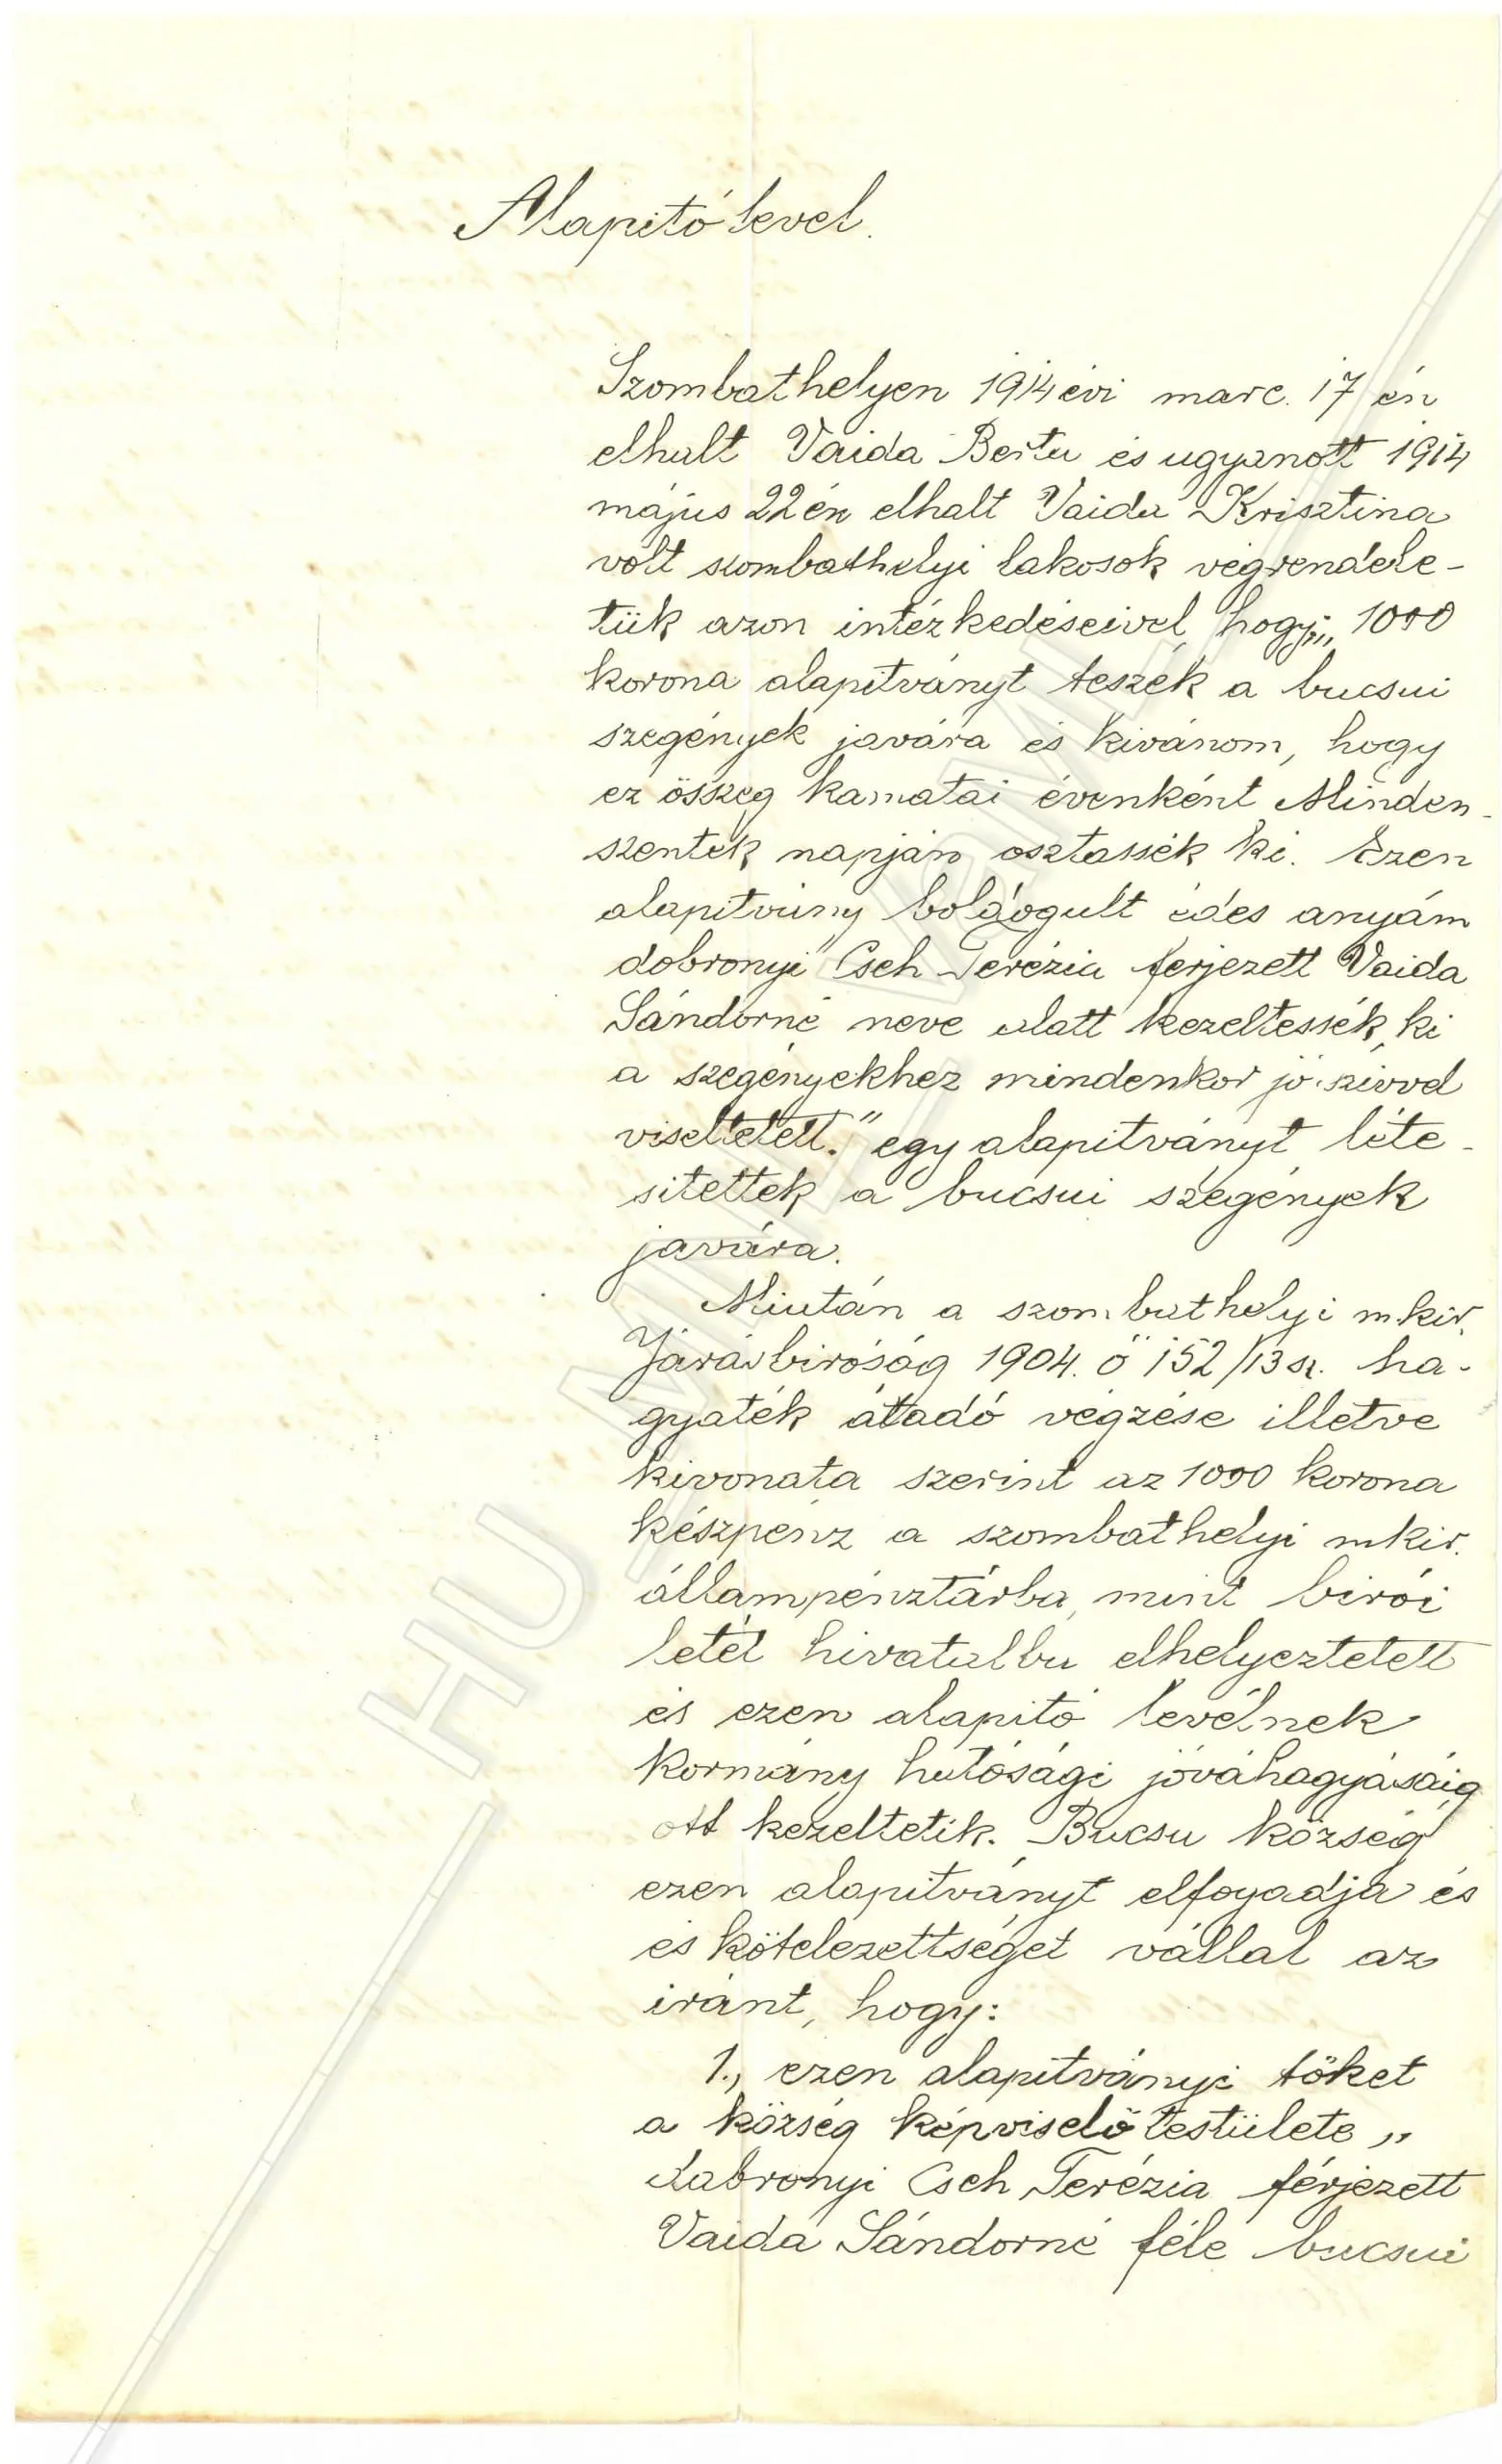 Alapitó level.
Szombathelyen 1914 évi marc. 17 én
elhalt Vaida Berta és ugyanott 1914
május 22 én elhalt Vaida Krisztina
volt szombathelyi lakosok végrendele-
tük azon intézkedéseivel, hogy „ 1000
korona alapitványt teszek a bucsui
szegények javára és kivánom, hogy
ez összeg kamatai évenként Minden-
szentek napján osztassék ki. Ezen
alapitvány boldogult édes anyám
dobronyi Cseh Terézia férjezett Vaida
Sándorné neve alatt kezeltessék, ki
a szegényekhez mindenkor jó szivvel
viseltetett." egy alapitványt léte-
sitettek a bucsui szegények
javára.
Miután a szombathelyi mkir.
Járásbiróság 1904. Ö 152/13 sz. ha-
gyaték átadó végzése illetve
kivonata szerint az 1000 korona
készpénz a szombathelyi mkir.
állampénztárba, mint birói
letét hivatalba elhelyeztetett
és ezen alapitó levélnek
kormány hatósági jóváhagyásáig
ott kezeltetik. Bucsu község
ezen alapitványt elfogadja és
és kötelezettséget vállal az
iránt, hogy:
1., ezen alapitványi tőket
a község képviselő testülete „
Dabronyi Cseh Terézia férjezett
Vaida Sándorné féle bucsui
HU VaML